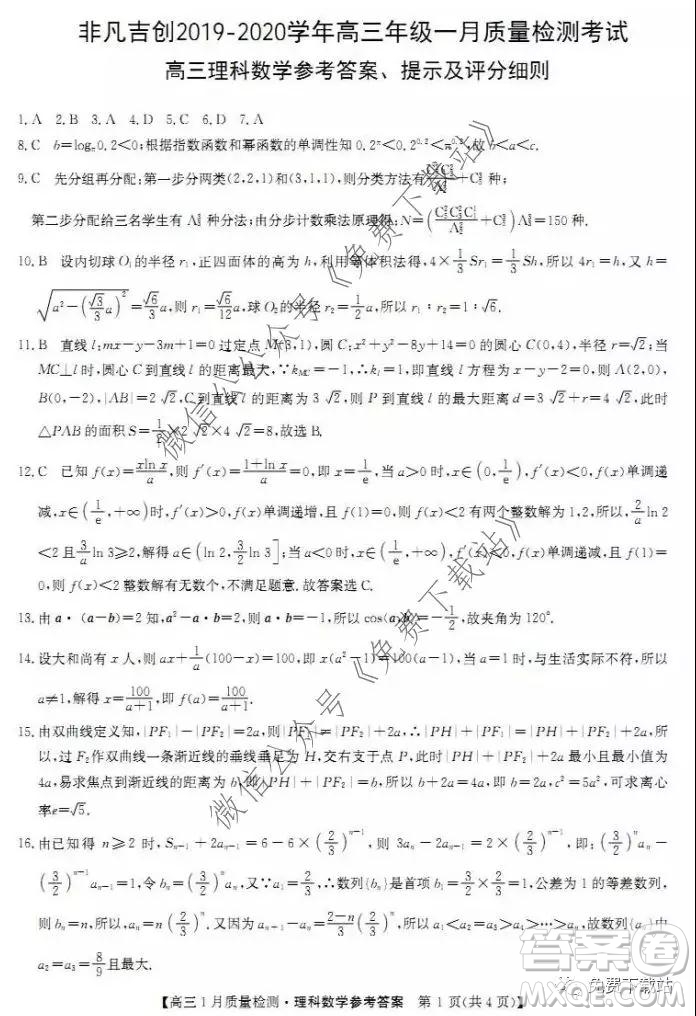 非凡吉创2019-2020学年高三年级一月质量检测考试
高三理科数学参考答案、提示及评分细则
1.A 2.B 3.A 4.D 5.D 6.B 7.A
8.C b=logπ0.2<0;根据指数函数和幂函数的单调性知 0.2^π<0.2^0.2<π^0.2,故 b<a<c.
9.C 先分组再分配;第一步分两类(2,2,1)和(3,1,1),则分类方法有
第二步分配给三名学生有 A³₃ 种分法;由分步计数乘法原理得:
=150 种.
10.B 设内切球 O₁的半径 r₁,正四面体的高为 h,利用等体积法得,4×1/3 Sr₁=1/3 Sh,所以 4r₁=h,又 h=
√(a²-(√3/3 a)²)=√6/3 a,则 r₁=√6/12 a,球 O₂的半径 r₂=1/2 a,所以 r₁:r₂=1:√6.
11.B 直线 l:mx-y-3m+1=0 过定点 M(3,1),圆 C:x²+y²-8y+14=0 的圆心 C(0,4),半径 r=√2;当
MC⊥l 时,圆心 C 到直线 l 的距离最大,∵k_MC=-1,∴k_l=1,即直线 l 方程为 x-y-2=0,则 A(2,0),
B(0,-2),|AB|=2√2,C 到直线 l 的距离为 3√2,则 P 到直线 l 的最大距离 d=3√2+r=4√2,此时
△PAB 的面积 S=1/2×2√2×4√2=8,故选 B.
12.C 已知 f(x)=xln x/a,则 f′(x)=(1+ln x)/a=0,即 x=1/e,当 a>0 时,x∈(0,1/e),f′(x)<0,f(x)单调递
减,x∈(1/e,+∞)时,f′(x)>0,f(x)单调递增,且 f(1)=0,则 f(x)<2 有两个整数解为 1,2,所以,2/a ln 2
<2 且 3/a ln 3≥2,解得 a∈(ln 2,3/2 ln 3];当 a<0 时,x∈(1/e,+∞),f′(x)<0,f(x)单调递减,且 f(1)=
0,则 f(x)<2 整数解有无数个,不满足题意.故答案选 C.
13.由 a·(a-b)=2 知,a²-a·b=2,则 a·b=-1,所以 cos⟨a,b⟩=-1/2,故夹角为 120°.
14.设大和尚有 x 人,则 ax+1/a(100-x)=100,即 x(a²-1)=100(a-1),当 a=1 时,与生活实际不符,所以
a≠1,解得 x=100/(a+1),即 f(a)=100/(a+1).
15.由双曲线定义知,|PF₁|-|PF₂|=2a,则|PF₁|=|PF₂|+2a,∴|PH|+|PF₁|=|PH|+|PF₂|+2a,所
以,过 F₂作双曲线一条渐近线的垂线垂足为 H,交右支于点 P,此时|PH|+|PF₂|+2a 最小且最小值为
4a,易求焦点到渐近线的距离为 b,即|PH|+|PF₂|=b,所以 b+2a=4a,即 b=2a,c²=5a²,可求离心
率e=√5.
16.由已知得 n≥2 时,Sₙ₋₁+2aₙ₋₁=6-6×(2/3)ⁿ⁻¹,则 3aₙ-2aₙ₋₁=2×(2/3)ⁿ⁻¹,即:(3/2)ⁿaₙ-
(3/2)ⁿ⁻¹aₙ₋₁=1,令 bₙ=(3/2)ⁿaₙ,又∵a₁=2/3,∴数列{bₙ}是首项为 3/2×2/3=1,公差为 1 的等差数列,
则 bₙ=n,所以,aₙ=n(2/3)ⁿ.又因为 aₙ₊₁-aₙ=(2-n)/3·(2/3)ⁿ,所以 a₁<a₂=a₃>a₄>…>aₙ,故数列{aₙ}中
a₂=a₃=8/9 且最大.
【高三1月质量检测·理科数学参考答案 第1页(共4页)】
微信公众号《免费下载站》
微信公众号《免费下载站》
免费下载站
答案圈